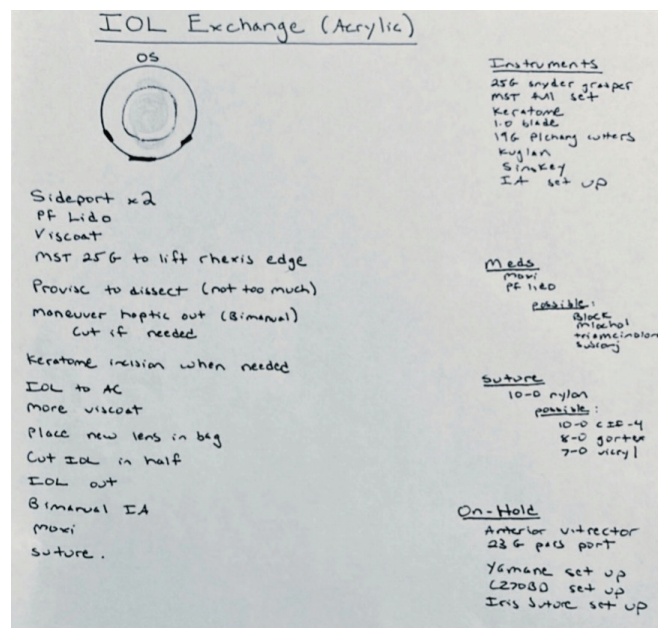 IOL Exchange (Acrylic)
OS
Sideport x2
PF Lido
Viscoat
MST 25G to lift rhexis edge
Provisc to dissect (not too much)
maneuver haptic out (Bimanual)
Cut if needed
Keratome incision when needed
IOL to AC
more viscoat
Place new lens in bag
Cut IOL in half
IOL out
Bimanual IA
moxi
suture.
Instruments
25G snyder grasper
MST full set
Keratome
1.0 blade
19G Pichang cutters
Kuglan
Sinskey
IA set up
Meds
moxi
PF lido
possible:
Block
miochol
triamcinolon
subconj
Suture
10-0 nylon
possible:
10-0 CIF-4
8-0 gortex
7-0 vicryl
On-Hold
Anterior vitrector
23G pars port
Yamane set up
CZ70BD set up
Iris Suture set up